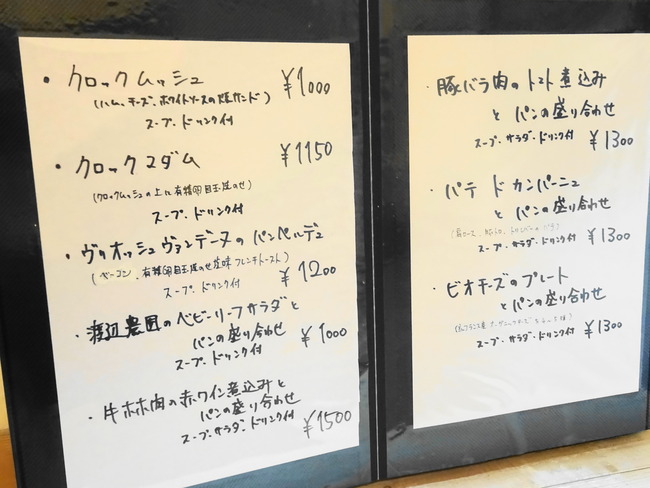 ・クロックムッシュ ¥1000
(ハム、チーズ、ホワイトソースの焼サンド)
スープ・ドリンク付
・クロックマダム ¥1150
(クロックムッシュの上に有精卵目玉焼のせ)
スープ・ドリンク付
・ヴリオッシュヴァンデーヌのパンペルデュ
(ベーコン、有精卵目玉焼のせ塩味フレンチトースト) ¥1200
スープ・ドリンク付
・渡辺農園のベビーリーフサラダと
パンの盛り合わせ ¥1000
スープ・ドリンク付
・牛ホホ肉の赤ワイン煮込みと
パンの盛り合わせ
スープ・サラダ・ドリンク付 ¥1500
・豚バラ肉のトマト煮込み
とパンの盛り合わせ
スープ・サラダ・ドリンク付 ¥1300
・パテ ド カンパーニュ
とパンの盛り合わせ
スープ・サラダ・ドリンク付 ¥1300
・ビオチーズのプレート
とパンの盛り合わせ
スープ・サラダ・ドリンク付 ¥1300